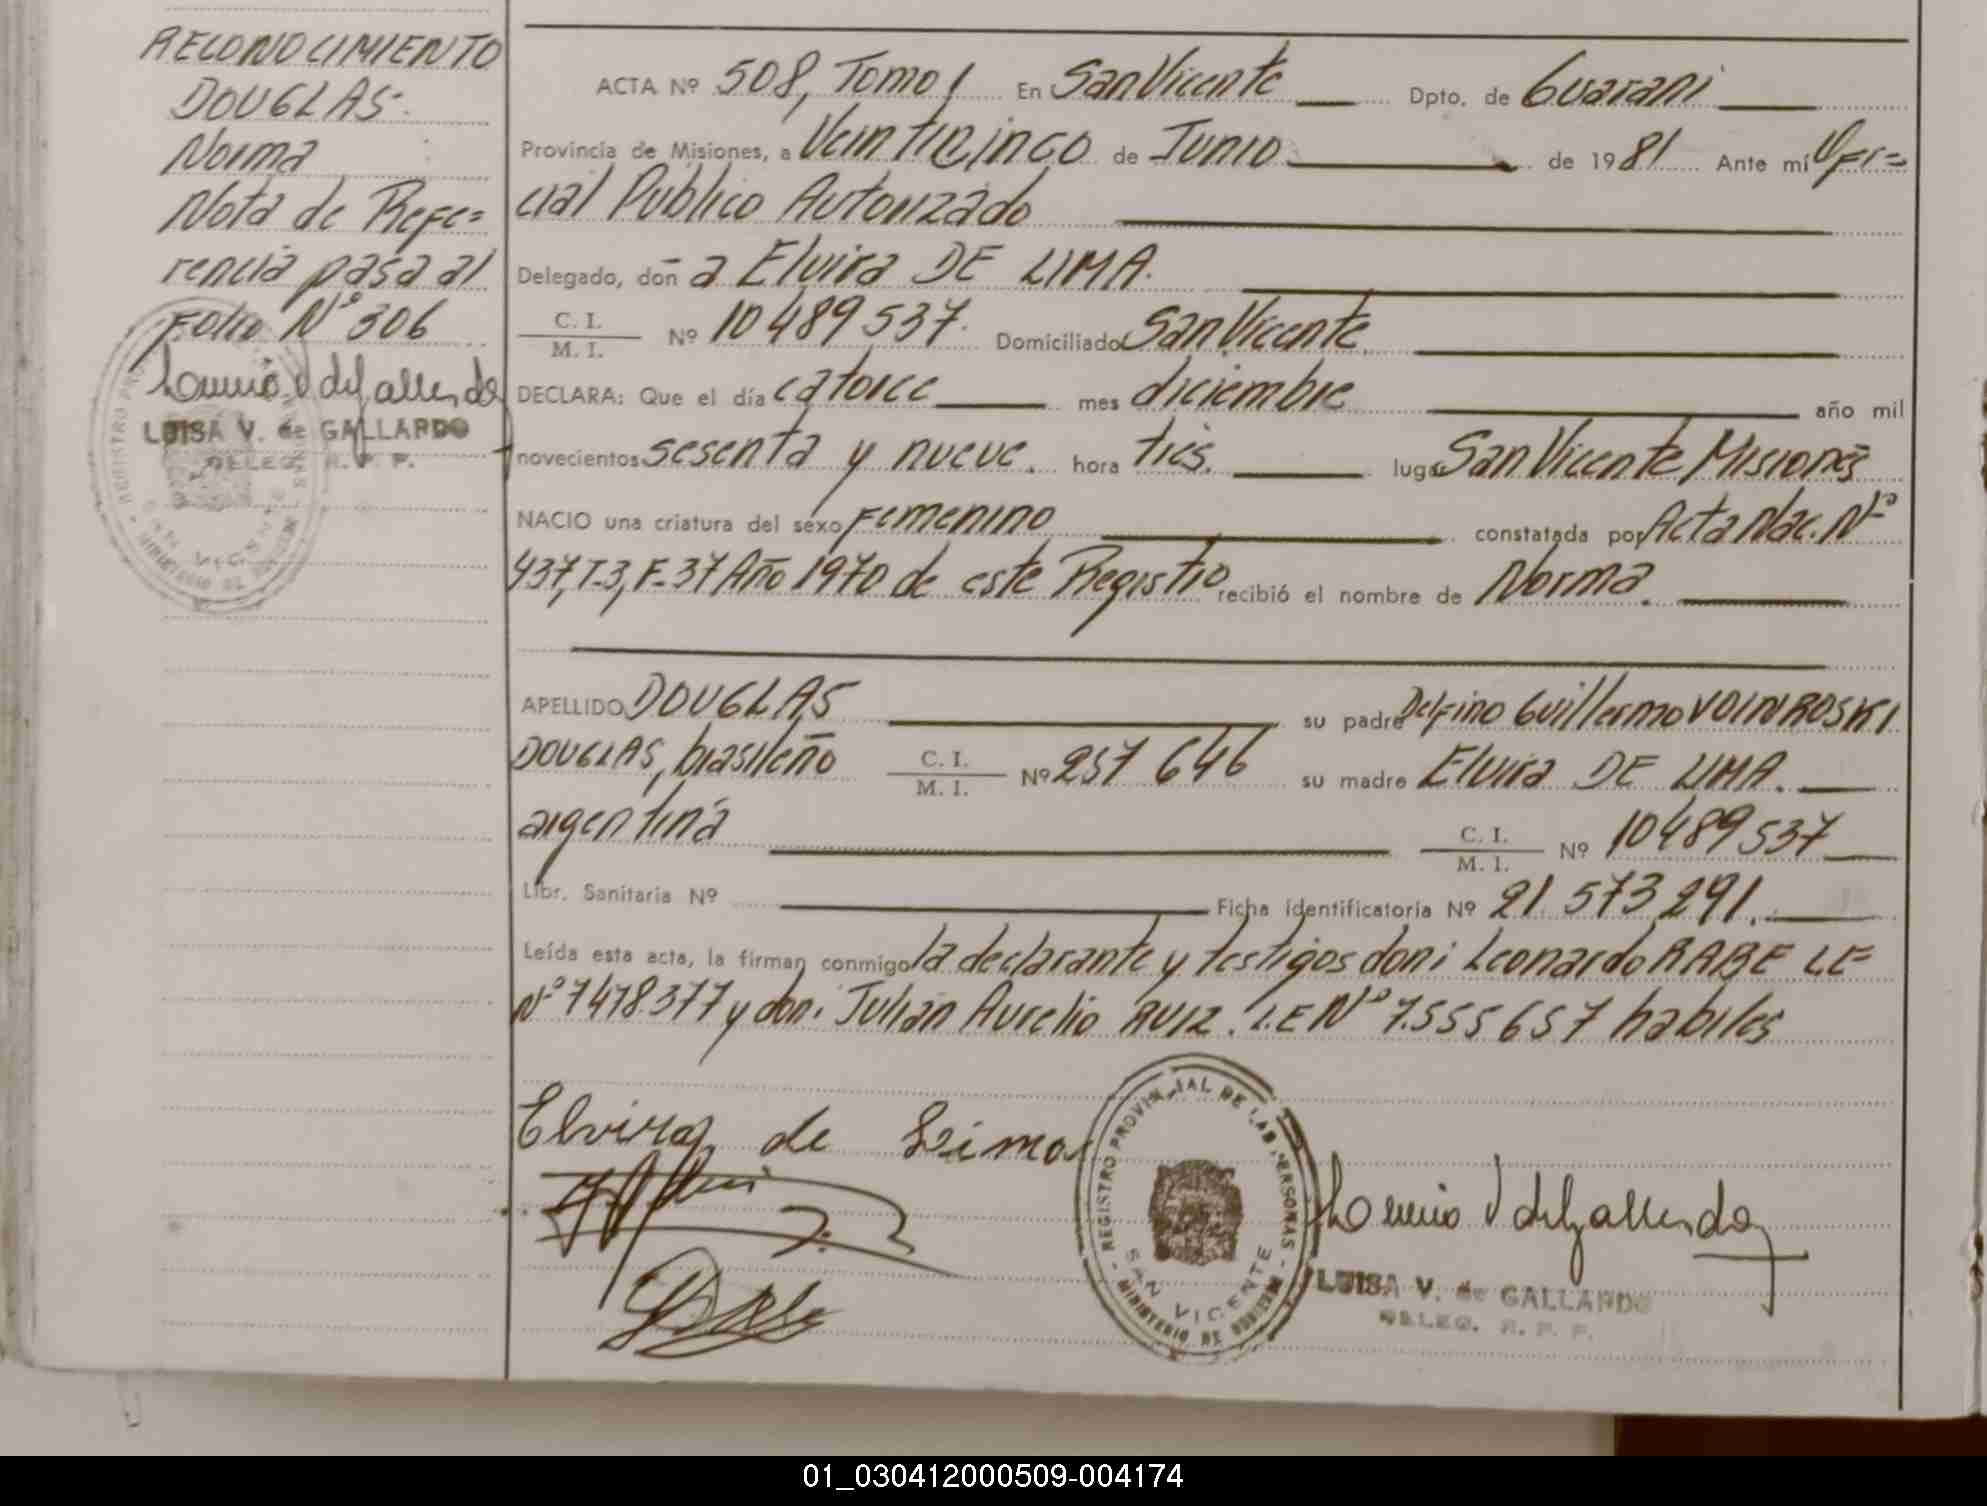 RECONOCIMIENTO
DOUGLAS.
Norma
Nota de Refe=
rencia pasa al
Folio Nº 306
LUISA V. de GALLARDO
DELEG. R. P. P.
ACTA Nº 508, Tomo 1 En San Vicente Dpto. de Guarani
Provincia de Misiones, a Veinticinco de Junio de 1981 Ante mí Ofi=
cial Público Autorizado
Delegado, don a Elvira DE LIMA.
C. I. / M. I. Nº 10 489 537. Domiciliado San Vicente
DECLARA: Que el día catorce mes diciembre año mil
novecientos sesenta y nueve. hora tres. lugar San Vicente Misiones
NACIO una criatura del sexo Femenino constatada por Acta Nac. Nº
437, T-3, F-37 Año 1970 de este Registro recibió el nombre de Norma.
APELLIDO DOUGLAS su padre Delfino Guillermo VOINROSKI
DOUGLAS, brasileño C. I. / M. I. Nº 257 646 su madre Elvira DE LIMA.
argentina C. I. / M. I. Nº 10489537
Libr. Sanitaria Nº Ficha identificatoria Nº 21 573 291.
Leída esta acta, la firman conmigo la declarante y testigos don: Leonardo RABE LE
Nº 7478.377 y don: Julian Aurelio RUIZ. L.E Nº 7.555 657 habiles
Elvira de Leima
REGISTRO PROVINCIAL DE LAS PERSONAS
SAN VICENTE
MINISTERIO DE GOBIERNO
LUISA V. de GALLARDO
DELEG. R. P. P.
01_030412000509-004174